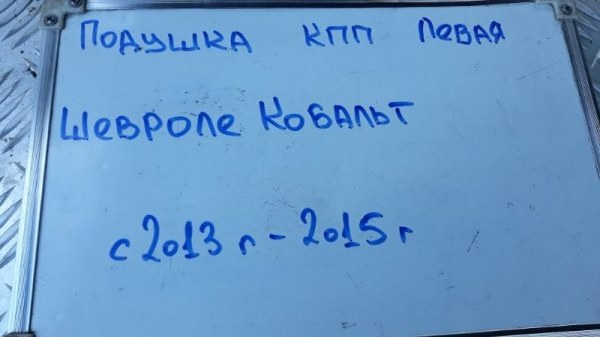 Подушка КПП Левая
Шевроле Кобальт
с 2013 г - 2015 г